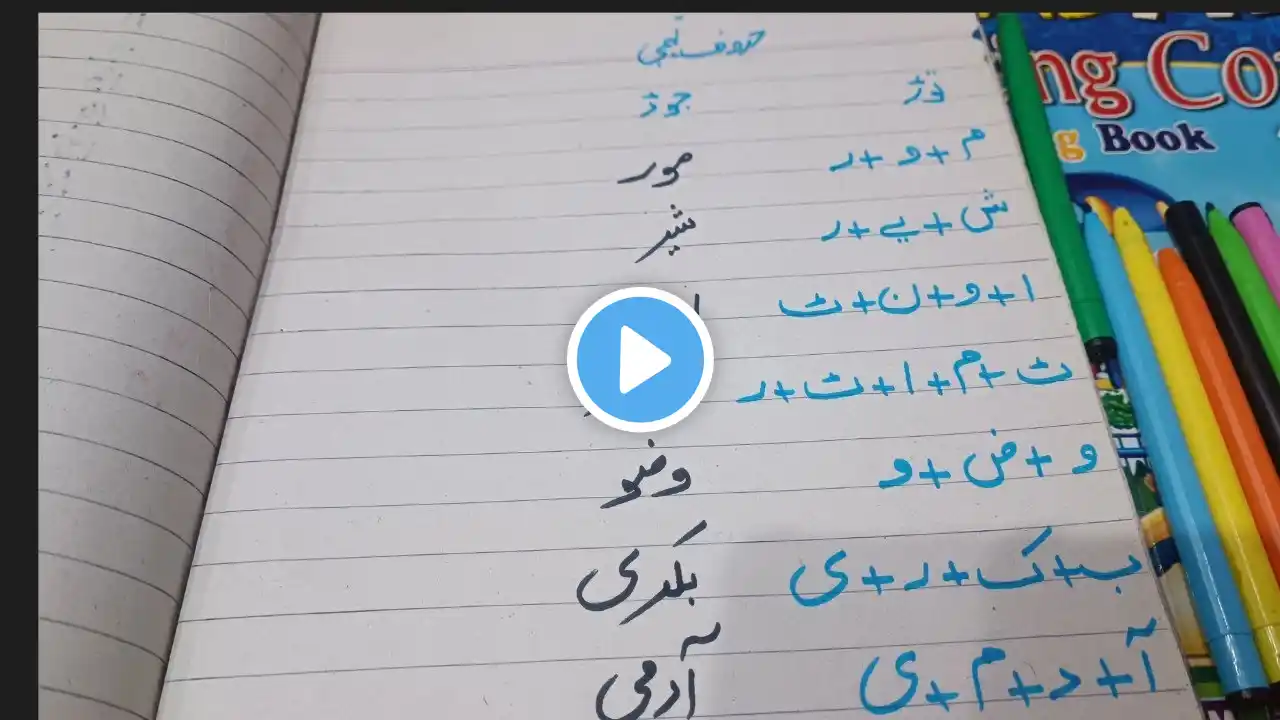 حروف تہجی
توڑ جوڑ
م + و + ر مور
ش + یے + ر شیر
ا + و + ن + ٹ ا
ٹ + م + ا + ٹ + ر
و + ض + و وضو
ب + ک + ر + ی بکری
آ + د + م + ی آدمی
ng Co
g Book